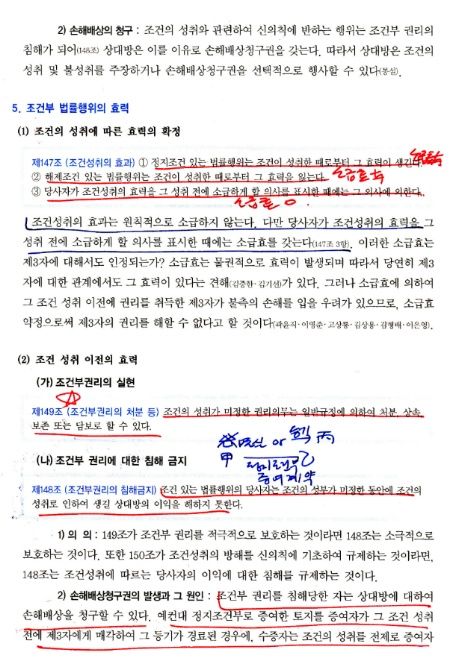 2) 손해배상의 청구 : 조건의 성취와 관련하여 신의칙에 반하는 행위는 조건부 권리의
침해가 되어(148조) 상대방은 이를 이유로 손해배상청구권을 갖는다. 따라서 상대방은 조건의
성취 및 불성취를 주장하거나 손해배상청구권을 선택적으로 행사할 수 있다(통설).
5. 조건부 법률행위의 효력
(1) 조건의 성취에 따른 효력의 확정
제147조 (조건성취의 효과) ① 정지조건 있는 법률행위는 조건이 성취한 때로부터 그 효력이 생긴다.
② 해제조건 있는 법률행위는 조건이 성취한 때로부터 그 효력을 잃는다.
③ 당사자가 조건성취의 효력을 그 성취 전에 소급하게 할 의사를 표시한 때에는 그 의사에 의한다.
소급효 O
조건성취의 효과는 원칙적으로 소급하지 않는다. 다만 당사자가 조건성취의 효력을 그
성취 전에 소급하게 할 의사를 표시한 때에는 소급효를 갖는다(147조 3항). 이러한 소급효는
제3자에 대해서도 인정되는가? 소급효는 물권적으로 효력이 발생되며 따라서 당연히 제3
자에 대한 관계에서도 그 효력이 있다는 견해(김증한·김기선)가 있다. 그러나 소급효에 의하여
그 조건 성취 이전에 권리를 취득한 제3자가 불측의 손해를 입을 우려가 있으므로, 소급효
약정으로써 제3자의 권리를 해할 수 없다고 할 것이다(곽윤직·이영준·고상룡·김상용·김형배·이은영).
(2) 조건 성취 이전의 효력
(가) 조건부권리의 실현
제149조 (조건부권리의 처분 등) 조건의 성취가 미정한 권리의무는 일반규정에 의하여 처분, 상속,
보존 또는 담보로 할 수 있다.
or 丙
甲
(나) 조건부 권리에 대한 침해 금지
정지조건부
증여계약
제148조 (조건부권리의 침해금지) 조건 있는 법률행위의 당사자는 조건의 성부가 미정한 동안에 조건의
성취로 인하여 생길 상대방의 이익을 해하지 못한다.
1) 의 의 : 149조가 조건부 권리를 적극적으로 보호하는 것이라면 148조는 소극적으로
보호하는 것이다. 또한 150조가 조건성취의 방해를 신의칙에 기초하여 규제하는 것이라면,
148조는 조건성취에 따르는 당사자의 이익에 대한 침해를 규제하는 것이다.
2) 손해배상청구권의 발생과 그 원인 : 조건부 권리를 침해당한 자는 상대방에 대하여
손해배상을 청구할 수 있다. 예컨대 정지조건부로 증여한 토지를 증여자가 그 조건 성취
전에 제3자에게 매각하여 그 등기가 경료된 경우에, 수증자는 조건의 성취를 전제로 증여자